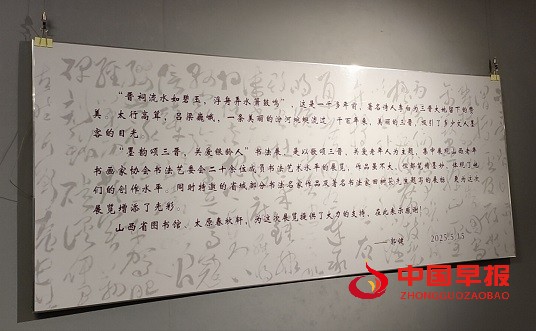 “晋祠流水如碧玉，浮舟弄水箫鼓鸣”，这是一千多年前，著名诗人李白为三晋大地留下的赞
美，太行高耸，吕梁巍峨，一条美丽的汾河蜿蜒流过，千百年来，美丽的三晋，吸引了多少文人墨
客的目光。
“墨韵颂三晋，关爱银龄人”书法展，是以歌颂三晋，关爱老年人为主题，集中展现山西老年
书画家协会书法艺委会二十余位成员书法艺术水平的展览，作品虽不大，但都笔精墨妙，体现了他
们的创作水平，同时特邀的省城部分书法名家作品及著名法家田树苌先生题写的展标，更为这次
展览增添了光彩。
山西省图书馆、太原春秋轩，为这次展览提供了大力的支持，在此表示感谢！
2025.5.15
中国早报
ZHONGGUOZAOBAO